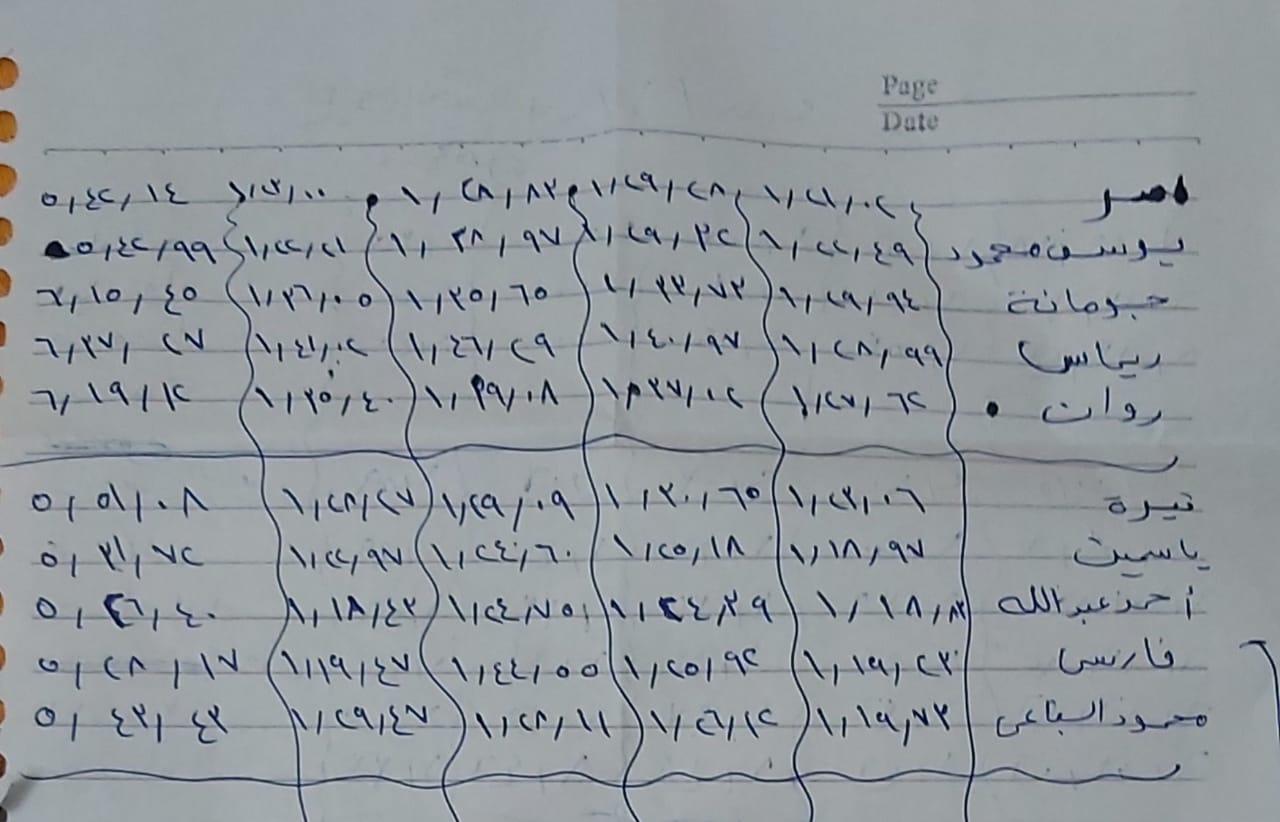 Page
Date
١,٢١,٠٢ ١,٢٩,٢٨ ١,٢٨,٨٣ ٥,٤٢,١٤
يوسف محمود ١,٢٢,٤٩ ١,٢٩,٣٢ ١,٢٨,٩٧ ١,٢٢,٢١ ٥,٤٢,٩٩
جومانة ١,٢٩,٩٤ ١,٣٣,٧٣ ١,٣٥,٦٥ ١,٣٦,٠٥ ٦,١٥,٤٥
ريماس ١,٢٨,٩٩ ١,٤٠,٩٧ ١,٤٦,٢٩ ١,٤١,٠٢ ٦,٣٧,٢٧
روان ١,٢٧,٦٢ ١,٣٧,٠٢ ١,٣٩,٠٨ ١,٣٥,٤٠ ٦,١٩,١٢
نيرة ١,٢٣,٠٦ ١,٣٠,٦٥ ١,٢٩,٠٩ ١,٢٨,٢٧ ٥,٥١,٠٨
ياسمين ١,١٨,٩٧ ١,٢٥,١٨ ١,٢٤,٦٠ ١,٢٢,٩٧ ٥,٣١,٧٢
أحمد عبدالله ١,١٨,٨٣ ١,٢٤,٣٩ ١,٢٤,٧٥ ١,١٨,٤٣ ٥,٢٦,٤٠
فارس ١,١٩,٢٣ ١,٢٥,٩٢ ١,١٩,٤٧ ٥,٢٨,١٧
محمود السباعى ١,١٩,٧٣ ١,٢٦,١٢ ١,٢٨,١١ ١,٢٩,٤٧ ٥,٤٣,٤٣